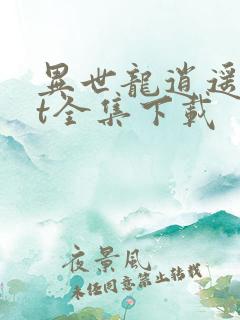 異世龍逍遥
t全集下載
夜景風
未经同意禁止转载